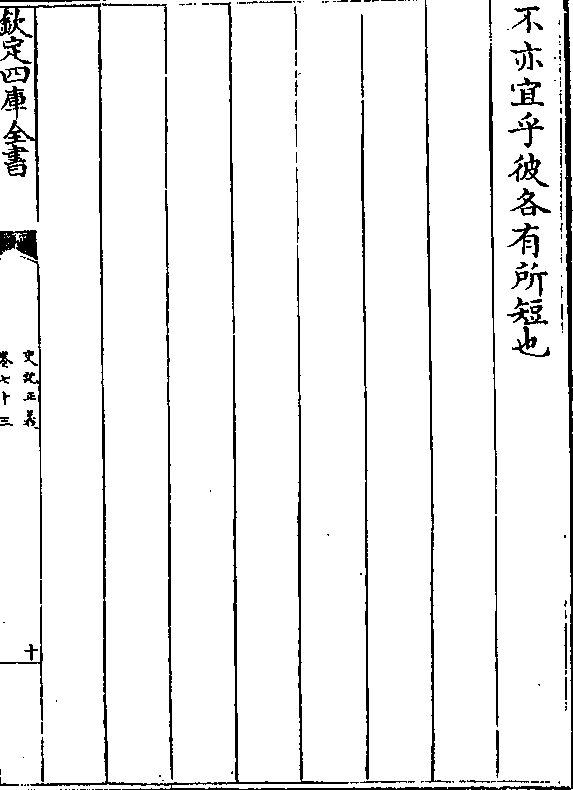 不亦宜乎彼各有所短也
欽定四庫全書
史記正義
卷七十三
十